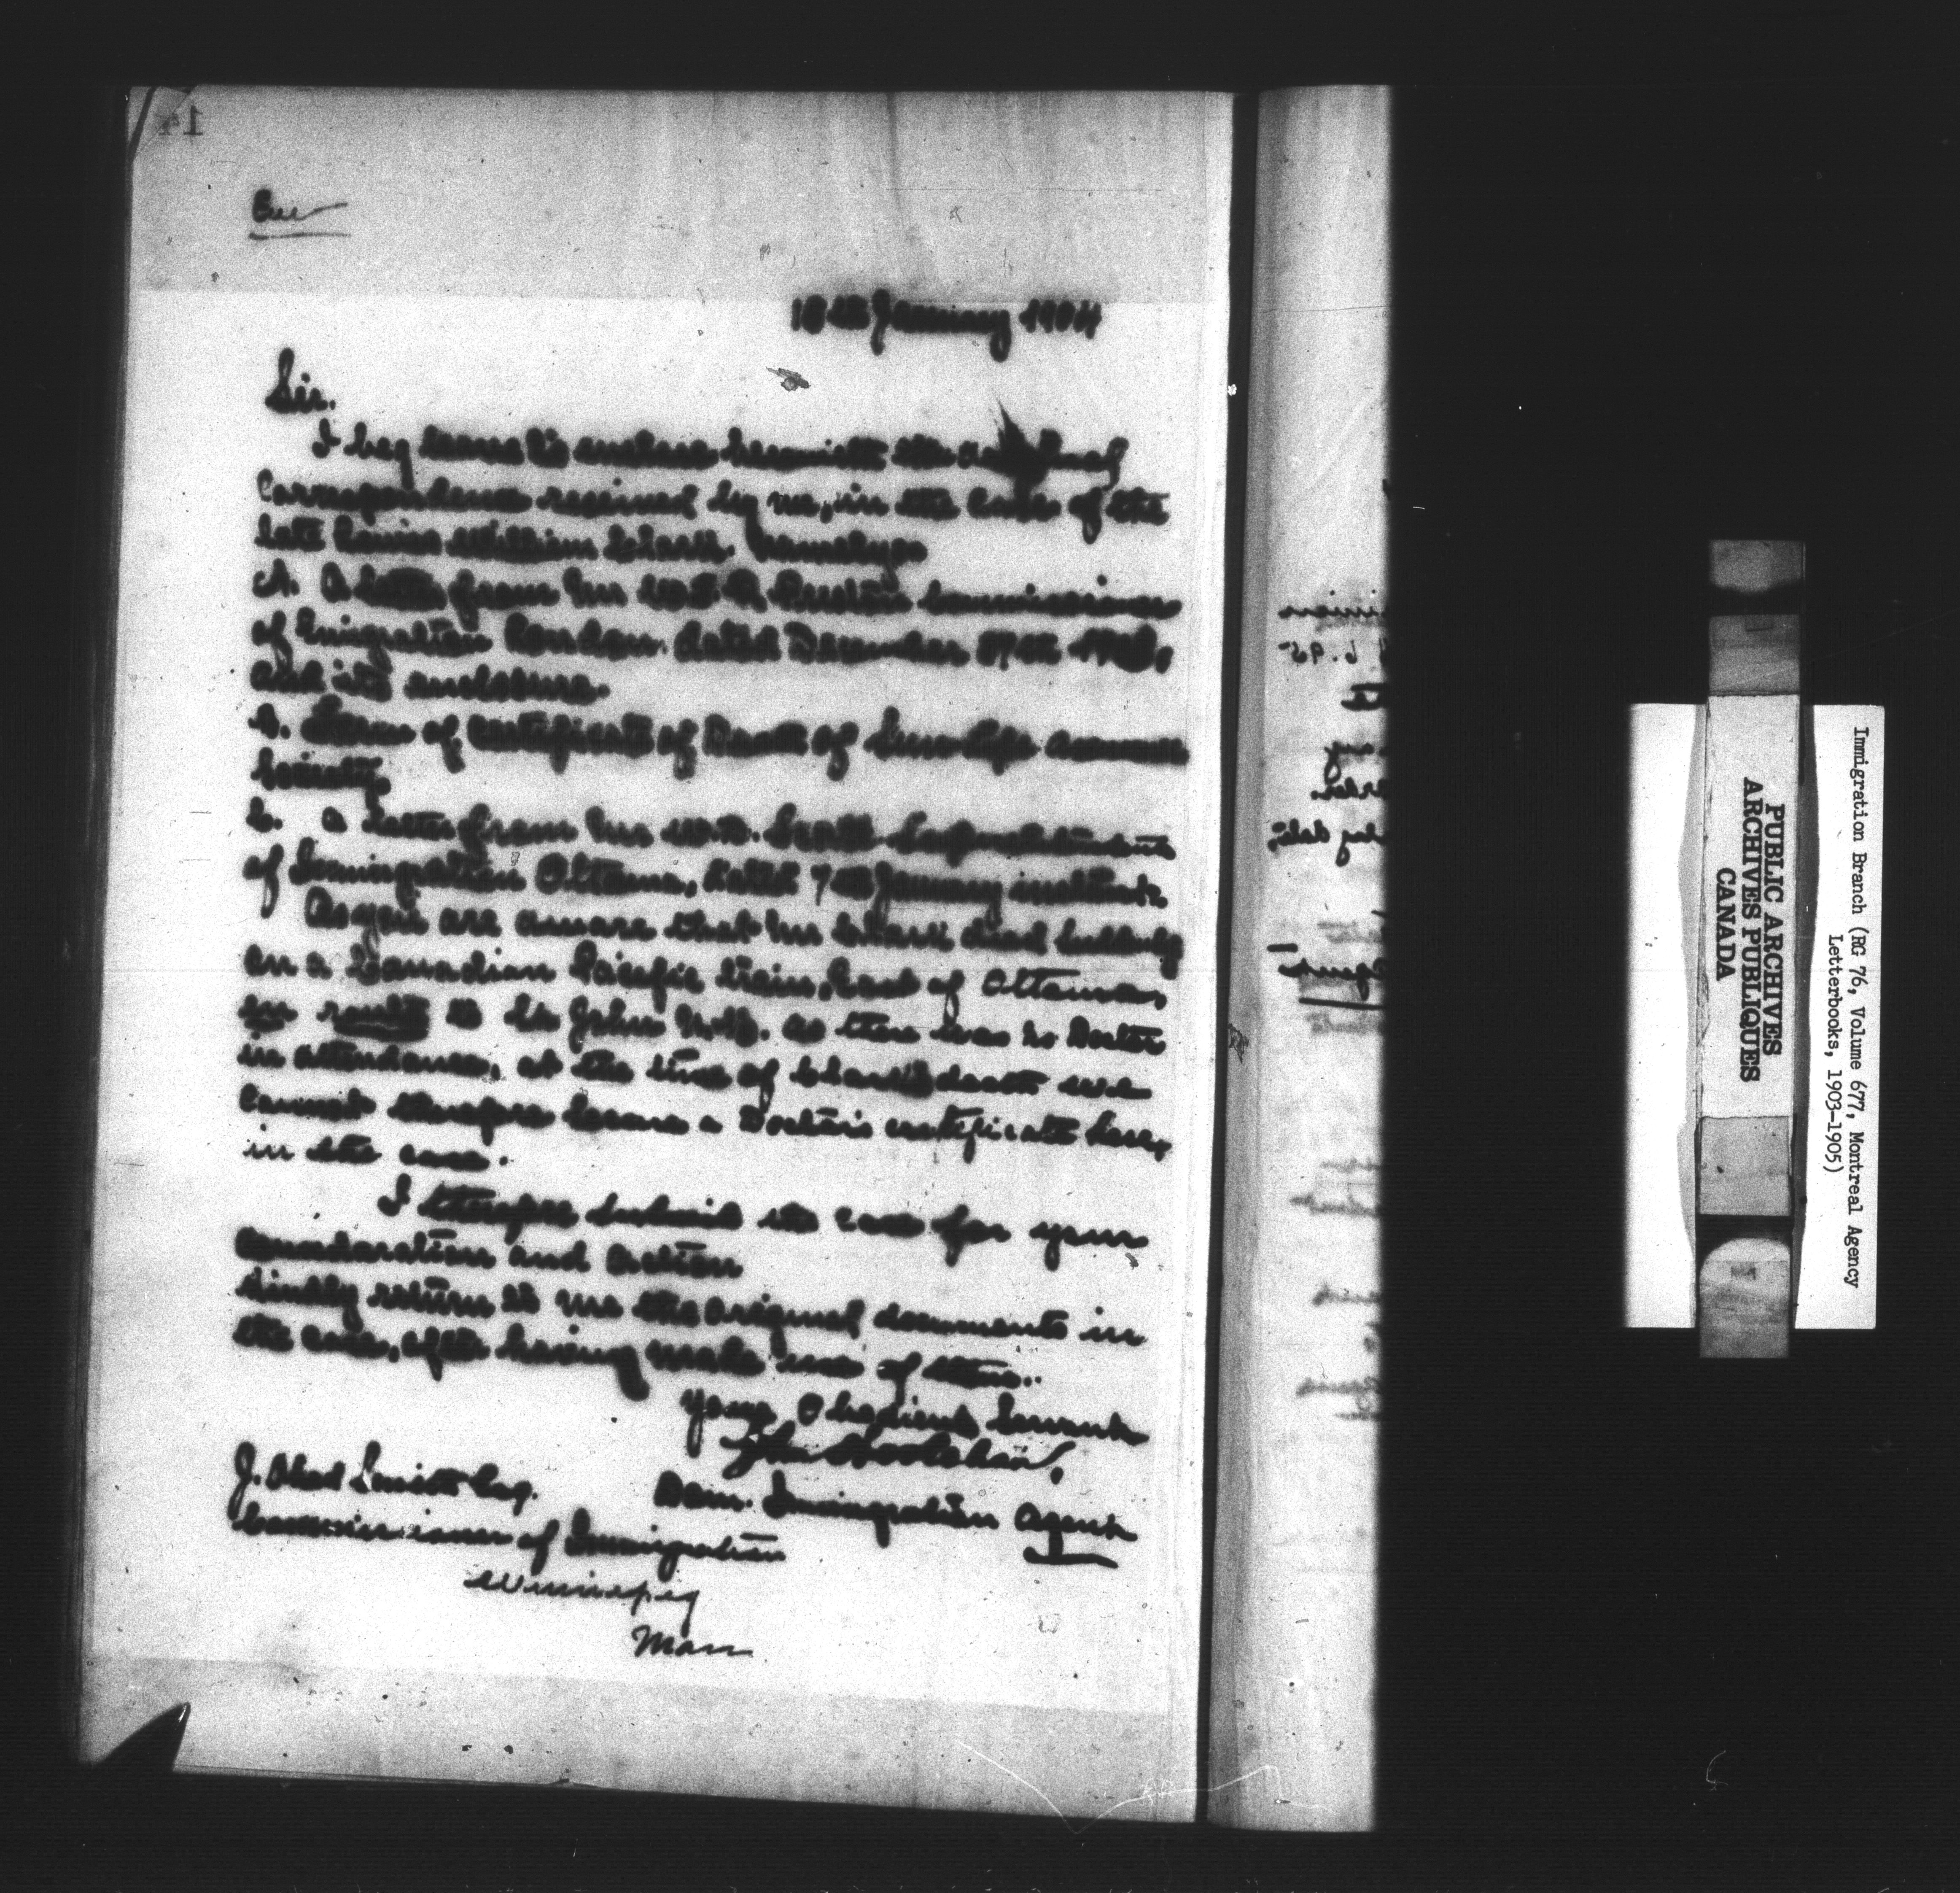 18th January 1904
Sir.
I beg leave to enclose herewith the
Correspondence received by me, in the case of the
late Louis William namely
A. A letter from Mr W.T.R. Preston Commissioner
of Emigration London. dated December 1903,
and its enclosure.
B. Form of certificate of Death of Sun Life assurance
Society.
C. a letter from Mr W.D. Scott Superintendent
of Immigration Ottawa, dated 7th January instant.
As you are aware that Mr died suddenly
on a Canadian Pacific train, East of Ottawa,
en route to St John N.B. as there was no Doctor
in attendance, at the time of death we
cannot therefore secure a Doctor's certificate here,
in the case.
I therefore submit the case for your
consideration and action
Kindly return to me the original documents in
the case, after having make use of them..
Your Obedient Servant
John Hoolahan,
J. Obed Smith Esq. Dom. Immigration Agent
Commissioner of Immigration
Winnipeg
Man
PUBLIC ARCHIVES
ARCHIVES PUBLIQUES
CANADA
Immigration Branch (RG 76, Volume 677, Montreal Agency
Letterbooks, 1903-1905)